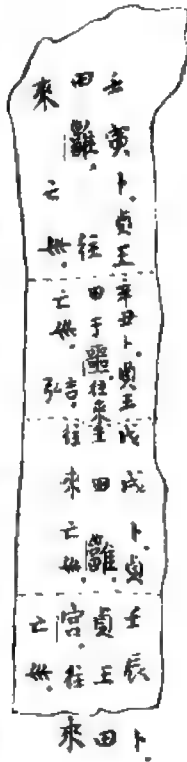 壬寅卜.貞王
田雝.往
來亡𡿧.
辛丑卜.貞王
田于噩往來
亡𡿧.弘吉.
戊戌卜.貞
王田雝.
往來亡𡿧.
壬辰卜.
貞王田
宮.往來
亡𡿧.